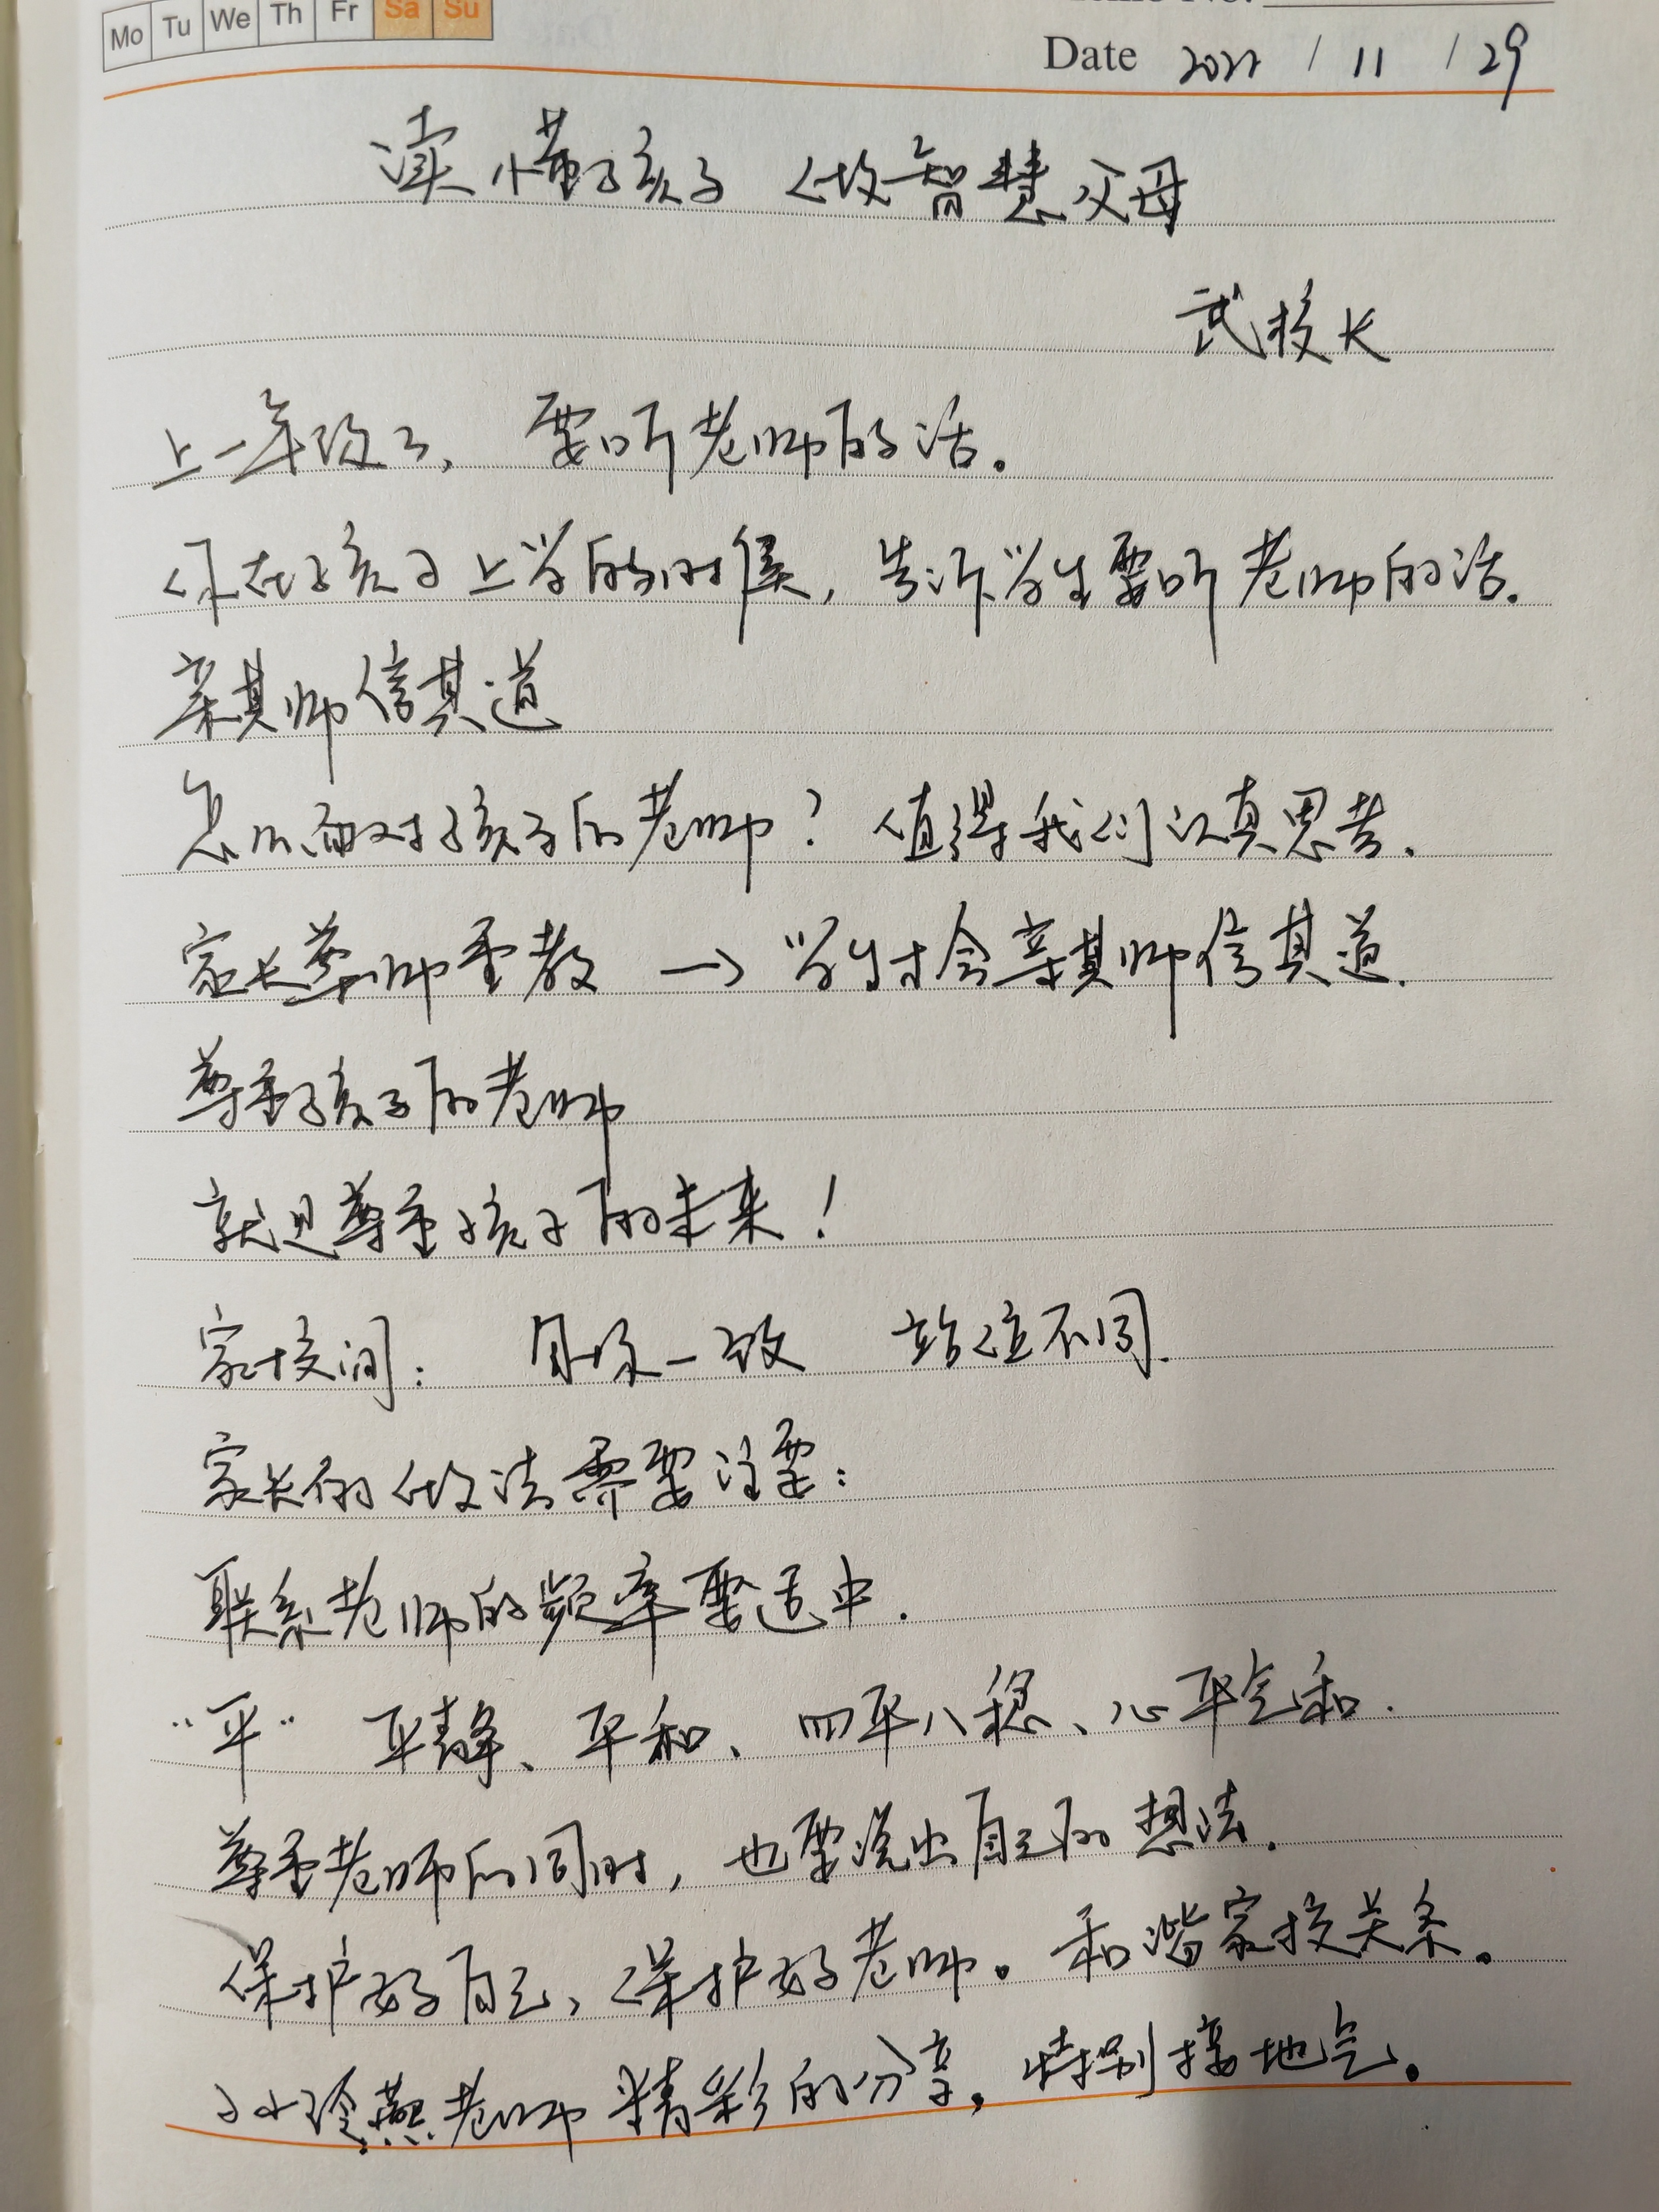 Mo Tu We Th Fr Sa Su
Date 2022 / 11 / 29
读懂孩子 做智慧父母
武校长
上一年级了，要听老师的话。
你在孩子上学的时候，告诉学生要听老师的话.
亲其师信其道
怎么面对孩子的老师？值得我们认真思考.
家长尊师重教 → 学生才会亲其师信其道.
尊重孩子的老师
就是尊重孩子的未来！
家校间： 目标一致 站位不同.
家长的做法需要注意：
联系老师的频率要适中.
“平” 平静、平和、四平八稳、心平气和.
尊重老师的同时，也要说出自己的想法.
保护好自己，保护好老师。和谐家校关系。
玲燕老师精彩的分享，特别接地气。